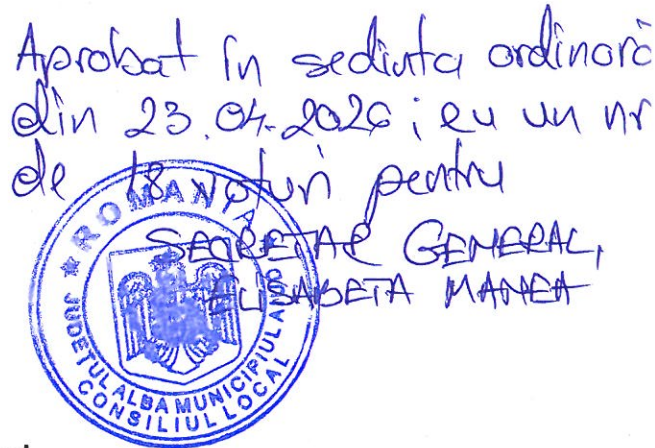 Aprobat în sedinta ordinară
din 23.04.2026; cu un nr
de 18 voturi pentru
SECRETAR GENERAL,
ELISABETA MANEA
ROMANIA
JUDEȚUL ALBA MUNICIPIUL
CONSILIUL LOCAL